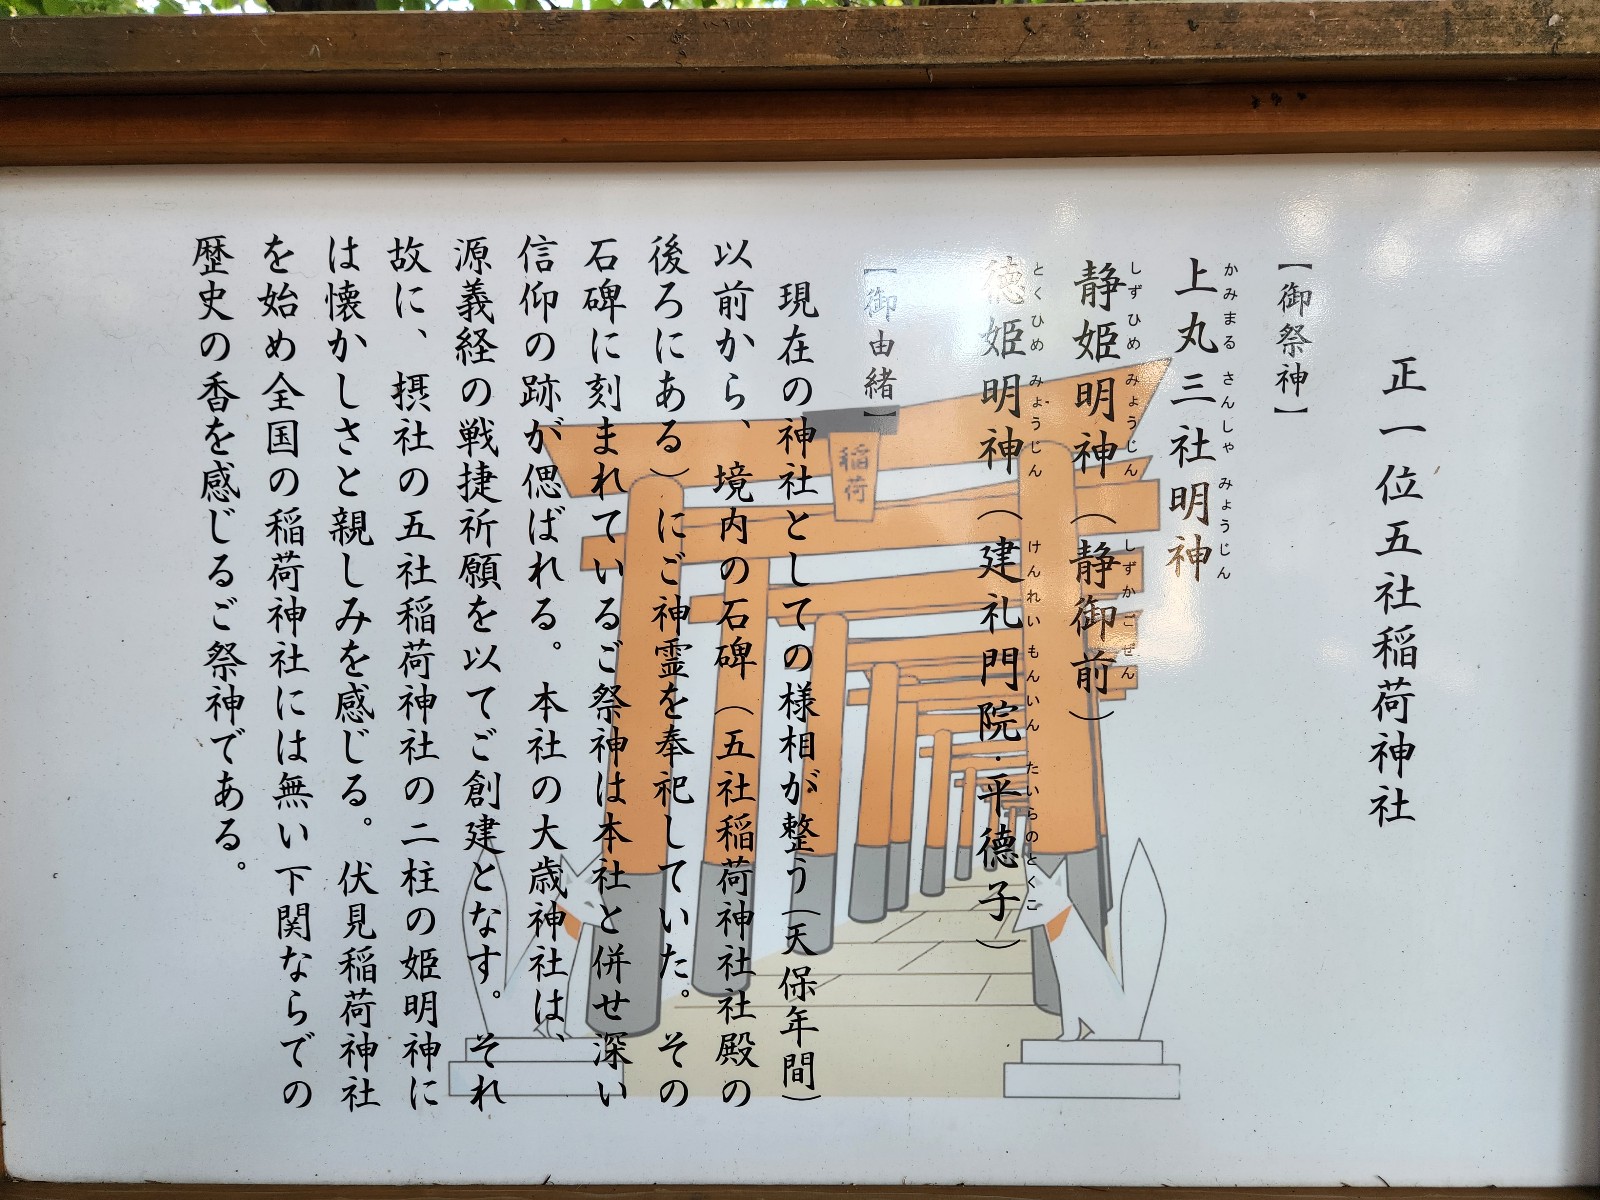 正一位五社稲荷神社
【御祭神】
上丸三社明神
かみまる さんしゃ みょうじん
静姫明神（静御前）
しずひめ みょうじん しずかごぜん
徳姫明神（建礼門院・平徳子）
とくひめ みょうじん けんれいもんいん たいらのとくこ
【御由緒】
現在の神社としての様相が整う（天保年間）
以前から、境内の石碑（五社稲荷神社社殿の
後ろにある）にご神霊を奉祀していた。その
石碑に刻まれているご祭神は本社と併せ深い
信仰の跡が偲ばれる。本社の大歳神社は、
源義経の戦捷祈願を以てご創建となす。それ
故に、摂社の五社稲荷神社の二柱の姫明神に
は懐かしさと親しみを感じる。伏見稲荷神社
を始め全国の稲荷神社には無い下関ならでの
歴史の香を感じるご祭神である。
稲荷